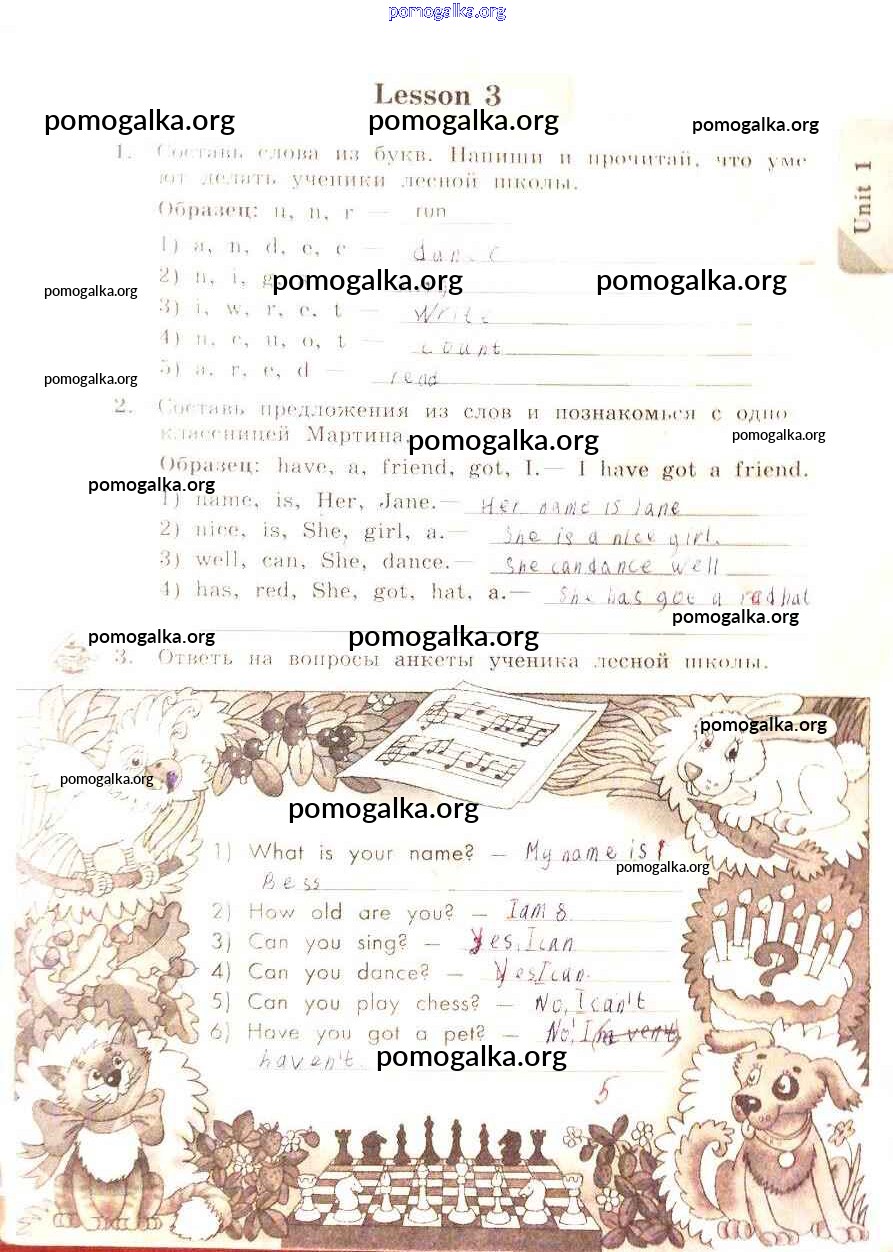 pomogalka.org
Lesson 3
pomogalka.org pomogalka.org pomogalka.org
1. Составь слова из букв. Напиши и прочитай, что уме
ют делать ученики лесной школы.
Unit 1
Образец: u, n, r — run
1) a, n, d, e, c — dance
2) n, i, g,
pomogalka.org pomogalka.org pomogalka.org
3) i, w, r, e, t — write
4) n, c, u, o, t — count
5) a, r, e, d — read
pomogalka.org
2. Составь предложения из слов и познакомься с одно
классницей Мартина.
pomogalka.org pomogalka.org
Образец: have, a, friend, got, I.— I have got a friend.
pomogalka.org
1) name, is, Her, Jane.— Her name is Jane
2) nice, is, She, girl, a.— She is a nice girl.
3) well, can, She, dance.— She can dance well
4) has, red, She, got, hat, a.— She has got a red hat
pomogalka.org
pomogalka.org pomogalka.org
3. Ответь на вопросы анкеты ученика лесной школы.
pomogalka.org
pomogalka.org
pomogalka.org
1) What is your name? — My name is
pomogalka.org
Bess
2) How old are you? — I am 8
3) Can you sing? — Yes, I can
4) Can you dance? — Yes I can.
5) Can you play chess? — No, I can't
6) Have you got a pet? — No, I
haven't. pomogalka.org
5